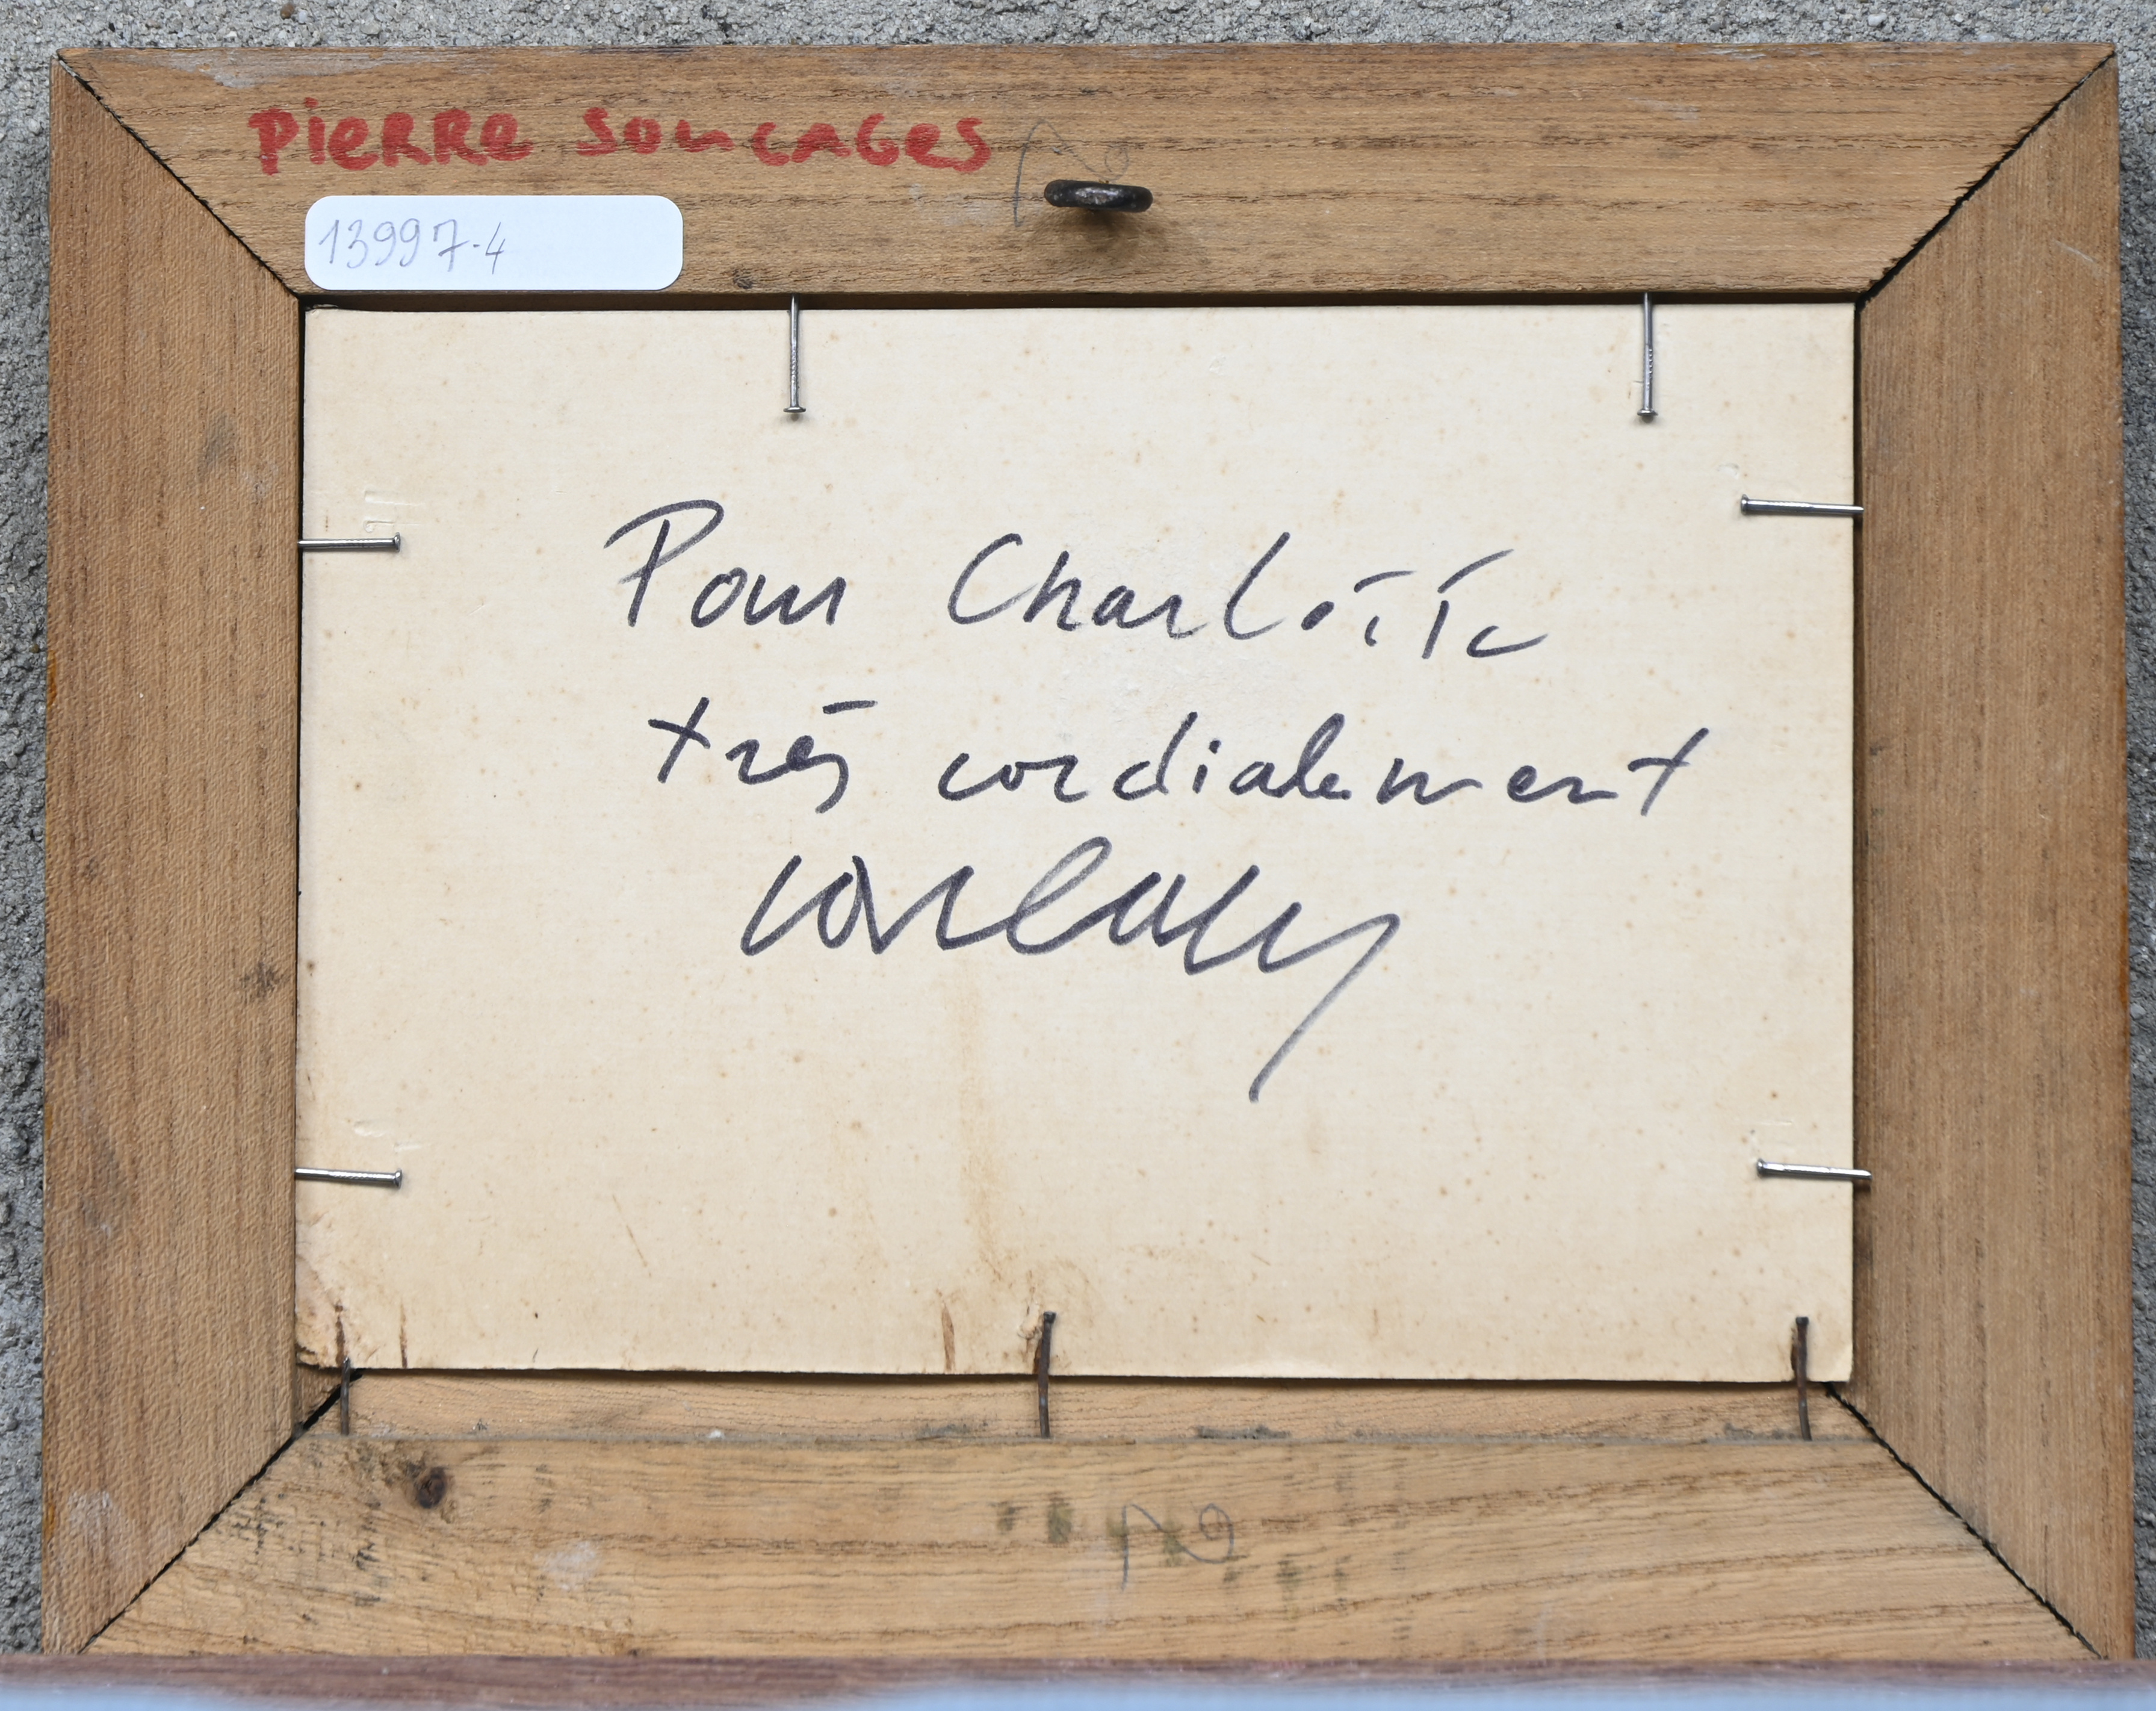 PieRRe SouLAGes
13997-4
Pour Charlotte
très cordialement